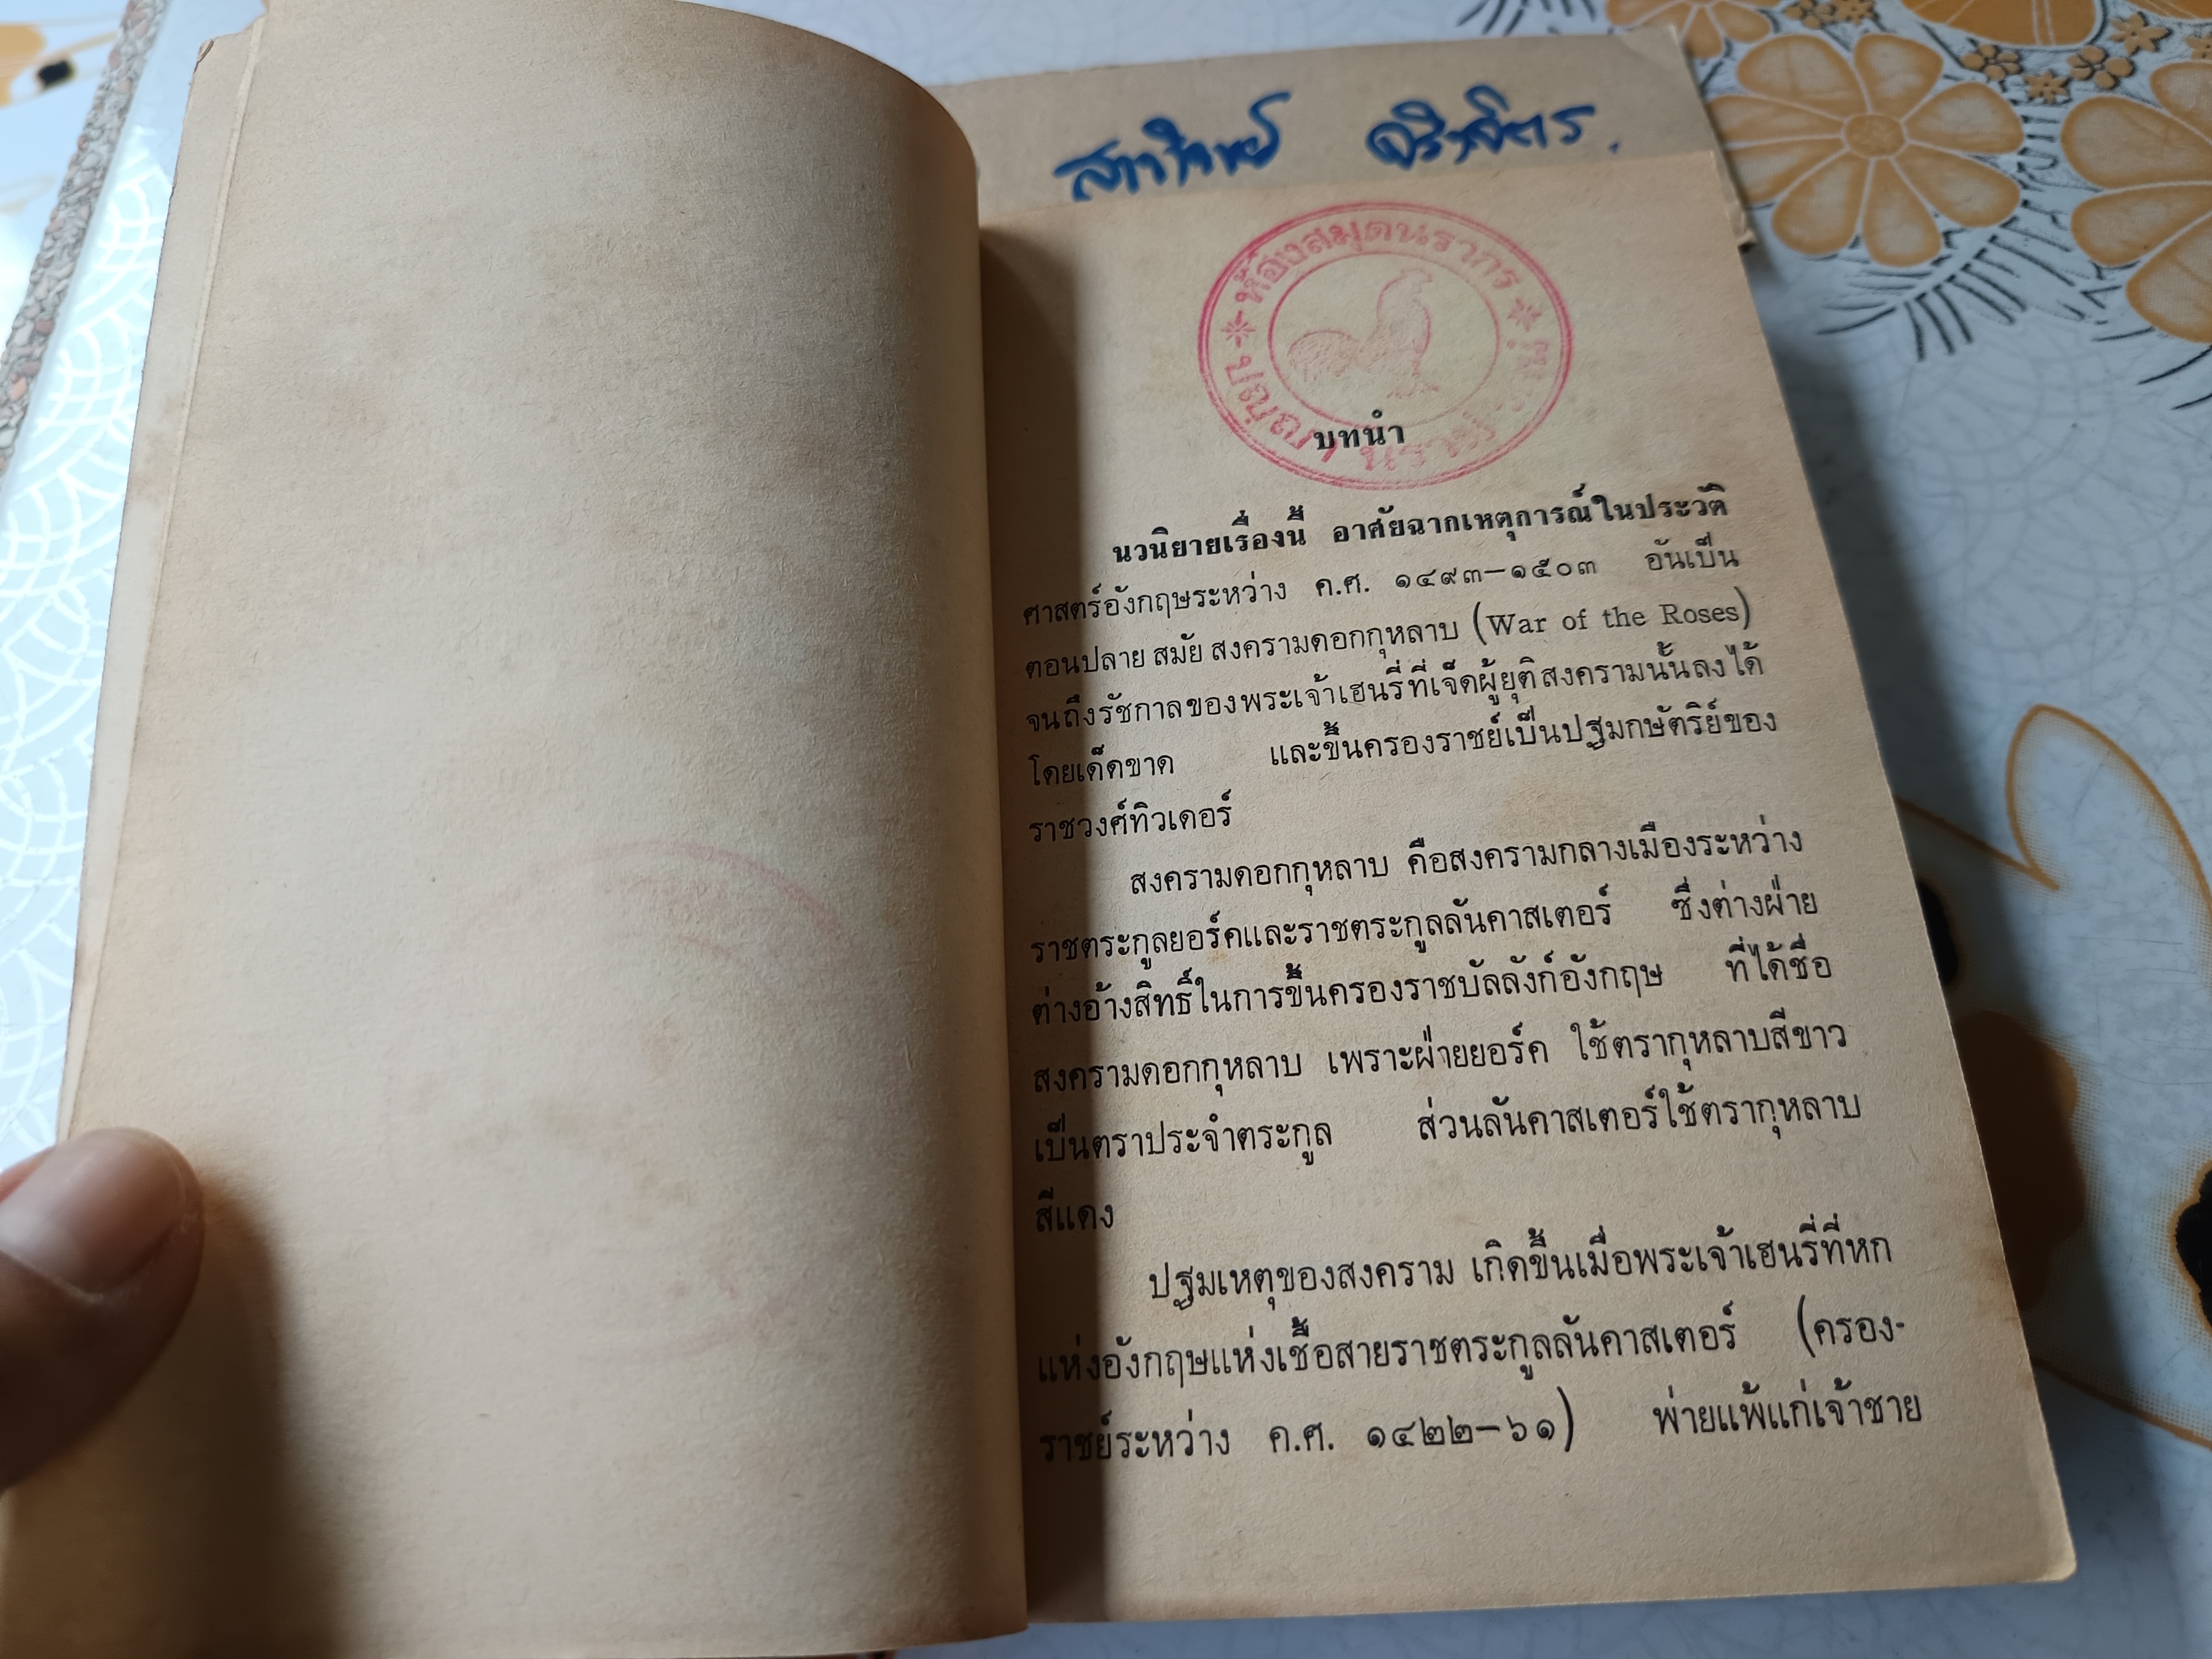 ห้องสมุดนรากร
บทนำ
นวนิยายเรื่องนี้ อาศัยฉากเหตุการณ์ในประวัติ
ศาสตร์อังกฤษระหว่าง ค.ศ. ๑๔๙๓—๑๕๐๓ อันเป็น
ตอนปลาย สมัย สงครามดอกกุหลาบ (War of the Roses)
จนถึงรัชกาลของพระเจ้าเฮนรี่ที่เจ็ดผู้ยุติสงครามนั้นลงได้
โดยเด็ดขาด และขึ้นครองราชย์เป็นปฐมกษัตริย์ของ
ราชวงศ์ทิวเดอร์
สงครามดอกกุหลาบ คือสงครามกลางเมืองระหว่าง
ราชตระกูลยอร์คและราชตระกูลลันคาสเตอร์ ซึ่งต่างฝ่าย
ต่างอ้างสิทธิ์ในการขึ้นครองราชบัลลังก์อังกฤษ ที่ได้ชื่อ
สงครามดอกกุหลาบ เพราะฝ่ายยอร์ค ใช้ตรากุหลาบสีขาว
เป็นตราประจำตระกูล ส่วนลันคาสเตอร์ใช้ตรากุหลาบ
สีแดง
ปฐมเหตุของสงคราม เกิดขึ้นเมื่อพระเจ้าเฮนรี่ที่หก
แห่งอังกฤษแห่งเชื้อสายราชตระกูลลันคาสเตอร์ (ครอง-
ราชย์ระหว่าง ค.ศ. ๑๔๒๒—๖๑) พ่ายแพ้แก่เจ้าชาย